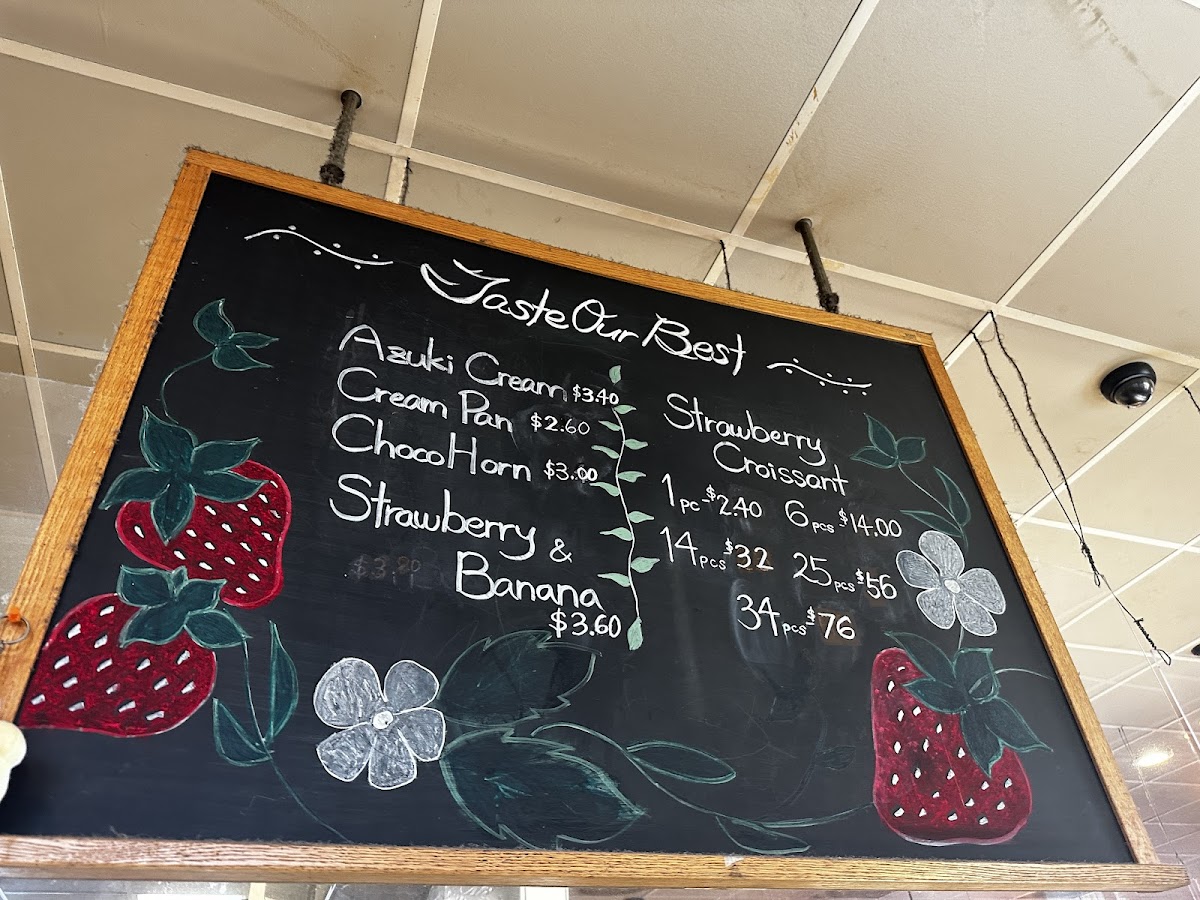 Taste Our Best
Azuki Cream $3.40
Cream Pan $2.60
Choco Horn $3.00
Strawberry &
Banana
$3.60
Strawberry
Croissant
1pc-$2.40 6pcs $14.00
14pcs $32 25pcs $56
34pcs $76